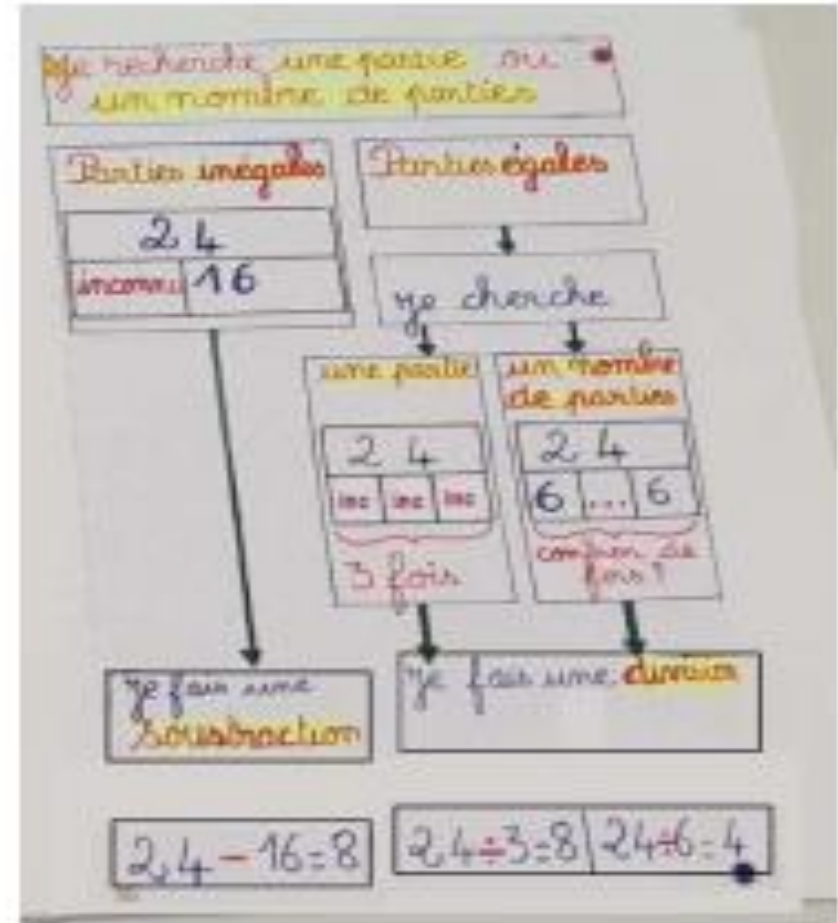 Je recherche une partie ou
un nombre de parties
Parties inégales
24
inconnu 16
Parties égales
Je cherche
une partie
24
inc inc inc
3 fois
un nombre
de parties
24
6 ... 6
combien de
fois ?
Je fais une
soustraction
Je fais une division
24 - 16 = 8
24 ÷ 3 = 8 | 24 ÷ 6 = 4